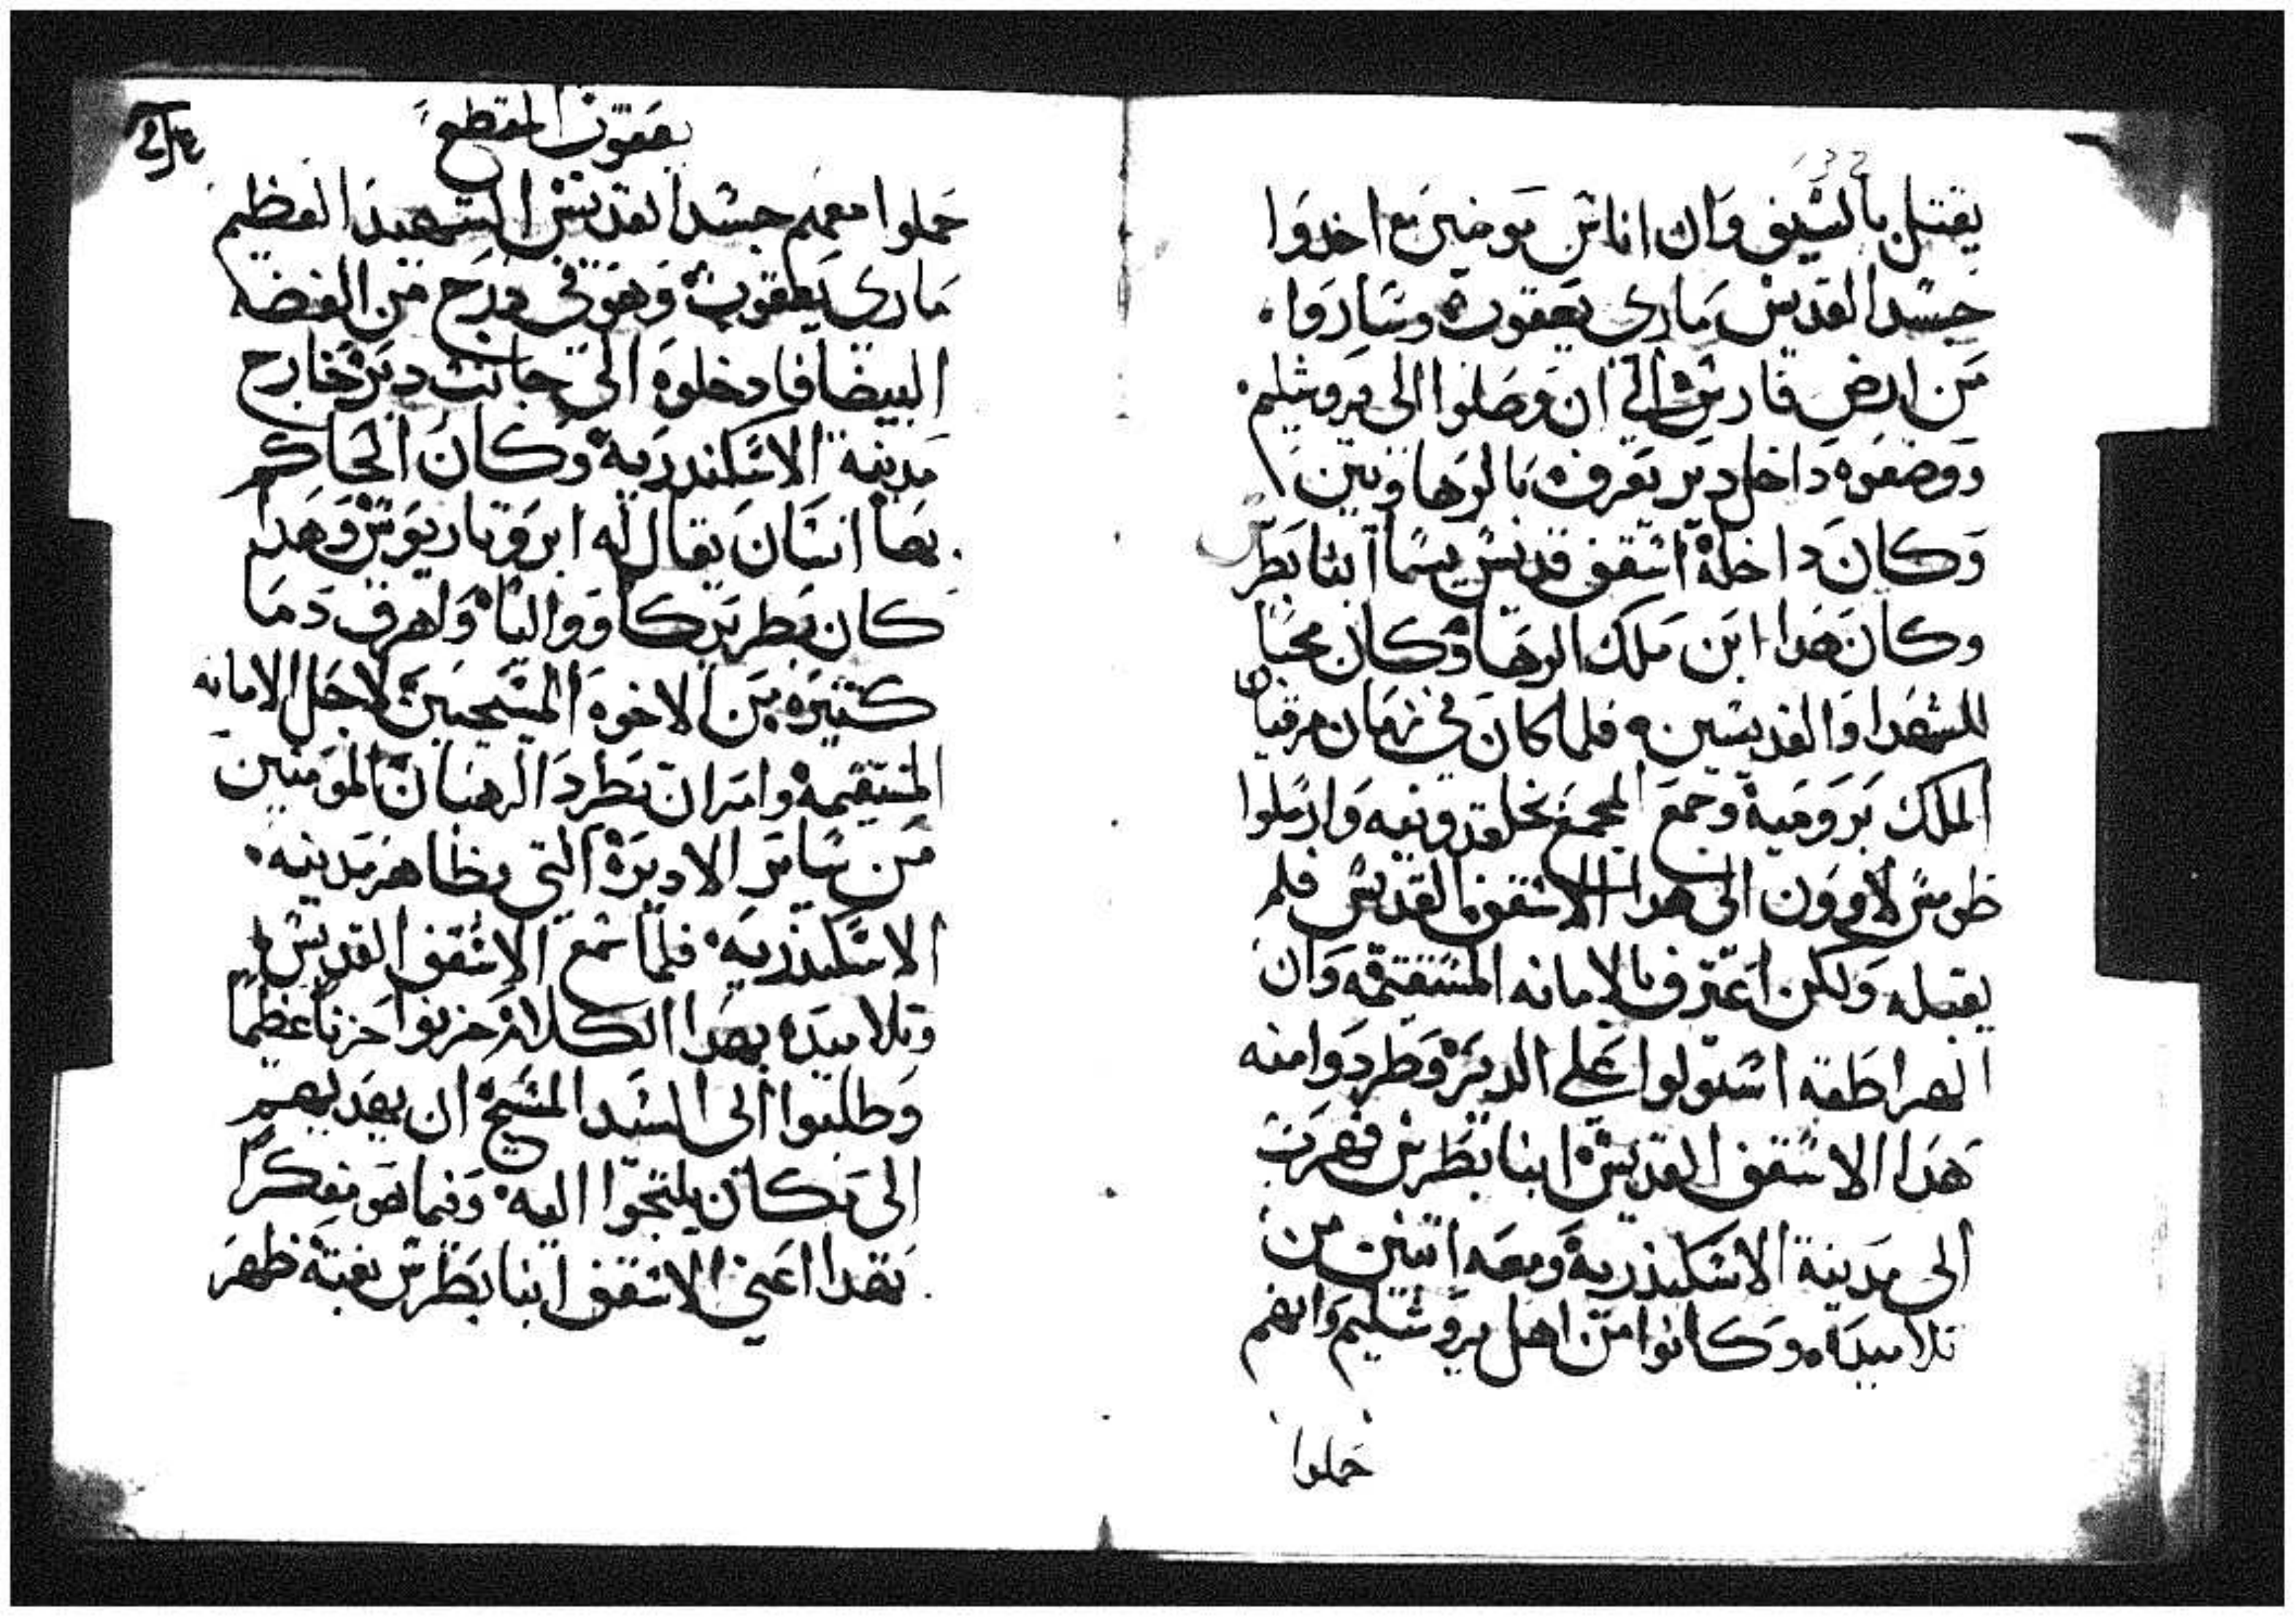 يقتل بالسيف وان اناس مومنين اخدوا
جسد القديس ماري يعقوب وساروا
من ارض فارس الى ان وصلوا الى يروشليم
ووضعوه داخل دير يعرف بالرهاويين
وكان داخله اسقف قديس يسما انبا بطرس
وكان هدا ابن ملك الرها وكان محبا
للشهدا والقديسين فلما كان في زمان مرقيان
الملك برومية وجمع المجمع بخلقدونيه وارسلوا
طومس لاوون الى هدا الاسقف القديس فلم
يقبله ولكن اعترف بالامانه المستقيمه وان
الهراطقه استولوا على الديره وطردوا منه
هدا الاسقف القديس انبا بطرس فهرب
الى مدينة الاسكندريه ومعه اتنين من
تلاميده وكانوا من اهل يروشليم وانهم
حملوا
يعقوب المقطع
حملوا معهم جسد القديس الشهيد العظيم
ماري يعقوب وهو في درج من الفضه
البيضا فادخلوه الى جانب دير خارج
مدينة الاسكندرية وكان الحاكم
بها انسان يقال له ابروتاريوس وهدا
كان بطريركا وواليا واهرق دما
كتيره من الاخوه المسيحيين لاجل الامانه
المستقيمه وامر ان تطرد الرهبان المومنين
من ساير الاديره التي بظاهر مدينه
الاسكندريه فلما سمع الاسقف القديس
وتلاميده بهدا الكلام حزنوا حزنا عظيما
وطلبوا الى السيد المسيح ان يهديهم
الى مكان يلتجوا اليه وفيما هو مفكرا
بهدا اعني الاسقف انبا بطرس بغته ظهر